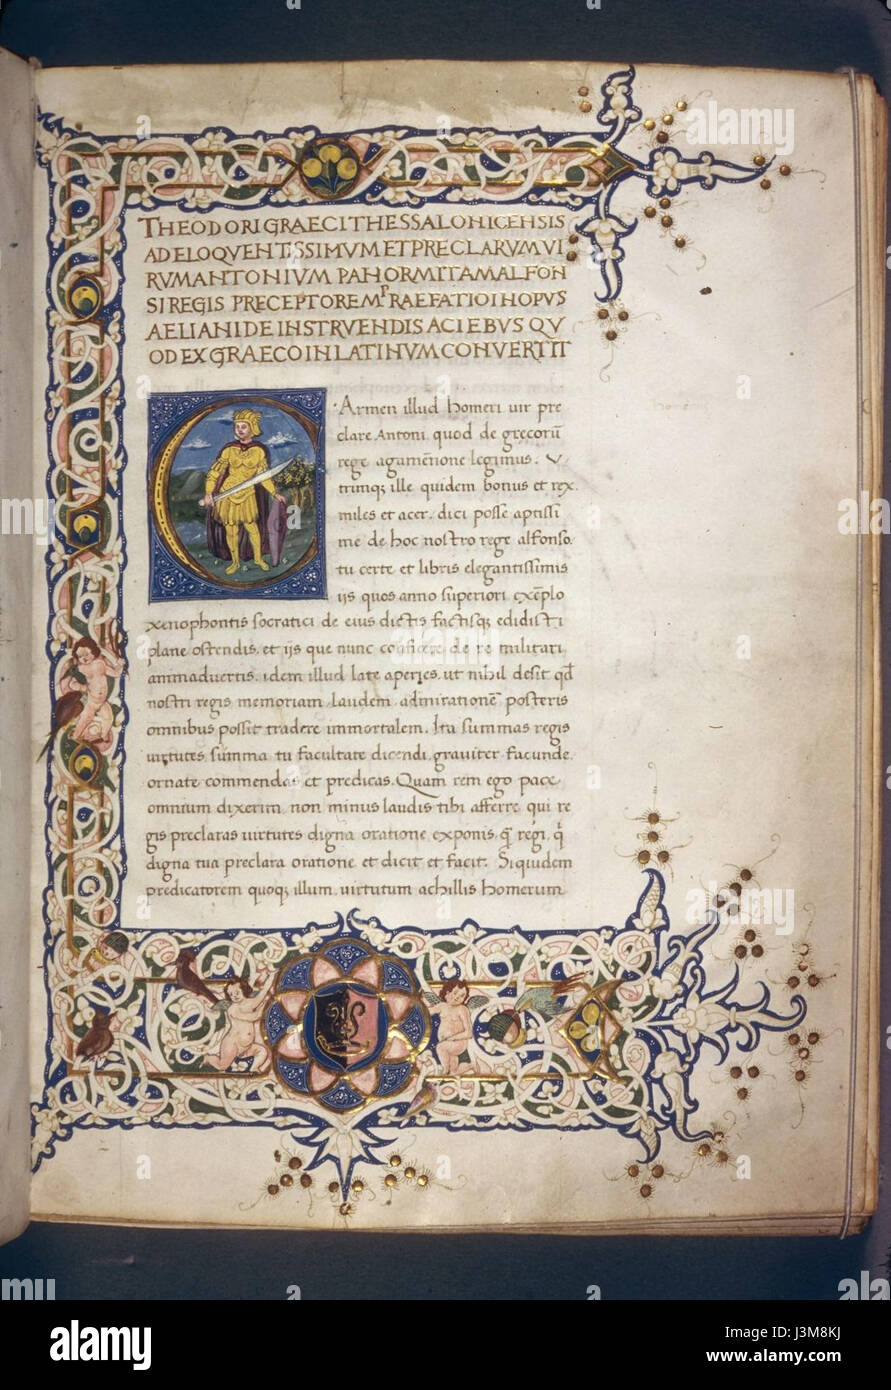 THEODORI GRAECI THESSALONICENSIS
AD ELOQVENTISSIMVM ET PRECLARVM VI
RVM ANTONIVM PANORMITAM ALFON
SI REGIS PRECEPTOREM PRAEFATIO IN OPVS
AELIANI DE INSTRVENDIS ACIEBVS QV
OD EX GRAECO IN LATINVM CONVERTIT
CArmen illud homeri uir pre
clare Antoni quod de grecorū
rege agamēnone legimus. V
trimq; ille quidem bonus et rex.
miles et acer. dici posse aptissi
me de hoc nostro rege alfonso.
tu certe et libris elegantissimis
ijs quos anno superiori exēplo
xenophontis socratici de eius dictis factisq; edidisti
plane ostendis. et ijs que nunc conficere de re militari
animaduertis. idem illud late aperies. ut nihil desit qd
nostri regis memoriam laudem admirationē posteris
omnibus possit tradere immortalem. Ita summas regis
uirtutes sūma tu facultate dicendi grauiter facunde.
ornate commendas et predicas. Quam rem ego pace
omnium dixerim non minus laudis tibi afferre qui re
gis preclaras uirtutes digna oratione exponis. q̄ regi. q̄
digna tua preclara oratione et dicit et facit. Siquidem
predicatorem quoq; illum uirtutum achillis homerum
a
alamy stock photo
J3M8KJ
www.alamy.com